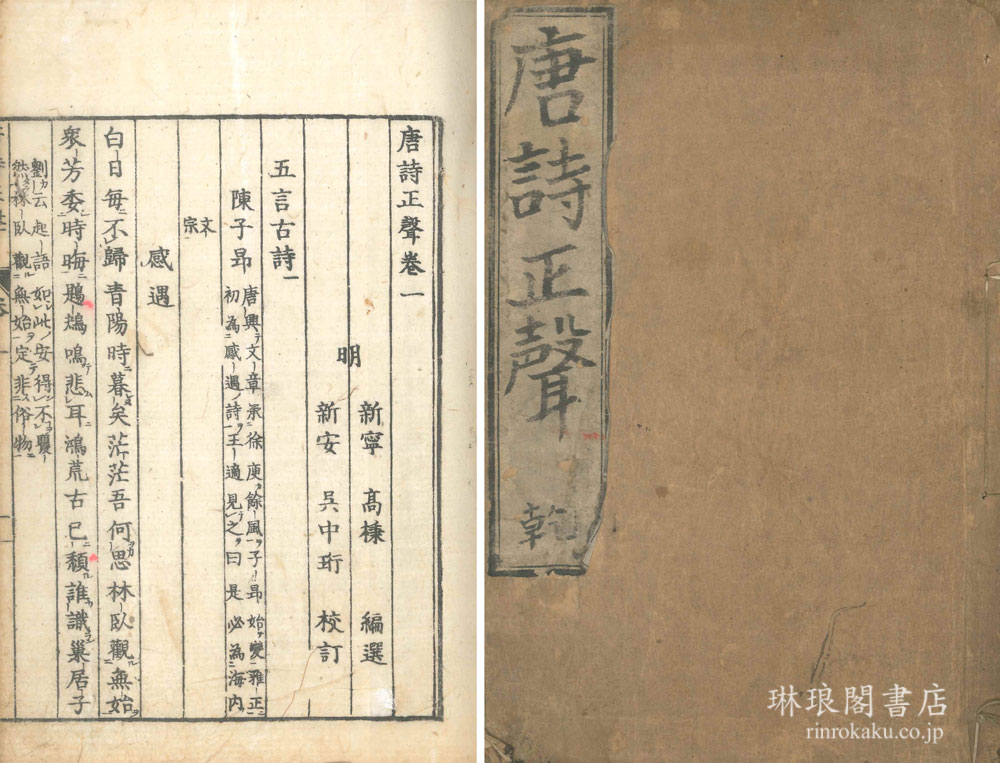 唐詩正聲
乾
唐詩正聲卷一
新寧 髙棅 編選
明
新安 吳中珩 校訂
五言古詩
陳子昂
唐興文章承徐庾餘風子昂始變雅正
初為感遇詩王適見之曰是必為海內
文宗
感遇
白日每不歸青陽時暮矣茫茫吾何思林臥觀無始
衆芳委時晦鶗鴂鳴悲耳鴻荒古已頹誰識巢居子
劉云起語如此安得不矍
然林臥觀無始定非俗物
琳琅閣書店
rinrokaku.co.jp